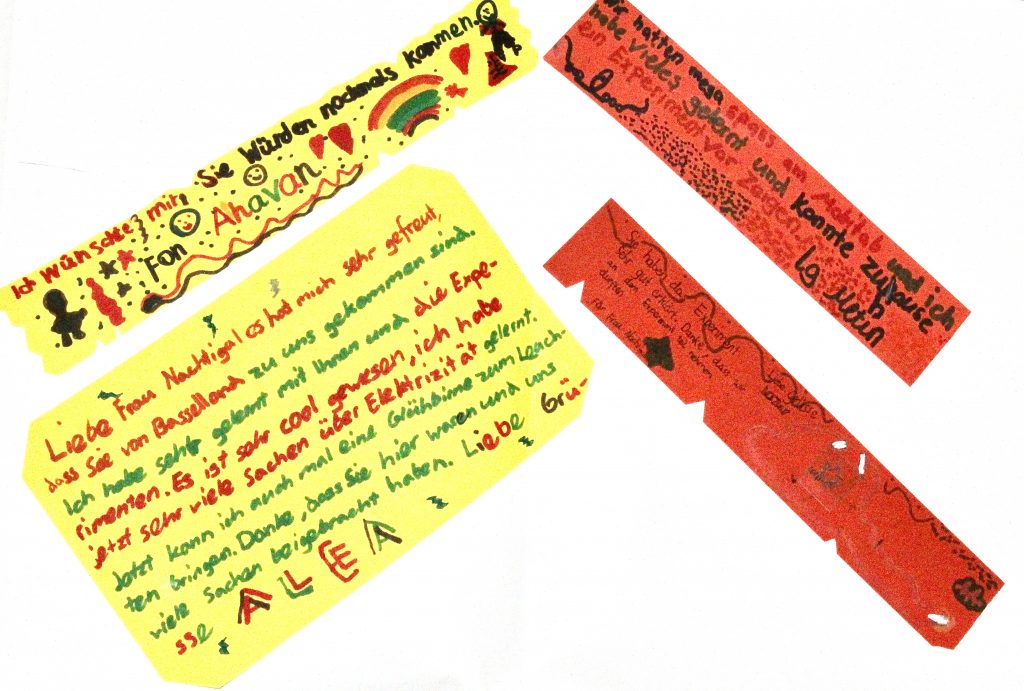 Ich wünschte mir, Sie Würden nochmals kommen.
Fon Ahavan
Liebe Frau Nachtigal es hat mich sehr gefreut,
dass Sie von Basselland zu uns gekommen sind.
Ich habe sehr gelernt mit Ihnen und die Expe-
rimenten. Es ist sehr cool gewesen, ich habe
jetzt sehr viele Sachen über Elektrizität gelernt.
Jetzt kann ich auch mal eine Glühbirne zum Leuch-
ten bringen. Danke, dass Sie hier waren und uns
viele Sachen beigebracht haben. Liebe Grü-
sse
ALEA
Wir hatten mega spass am
und ich
habe vieles gelernt und konnte zuhause
ein Experiment vor Zeigen
lg
Sie haben das
Experiment
so gut erklärt, Danke, dass wir
an den Experiment
durften
Liebe Grüsse